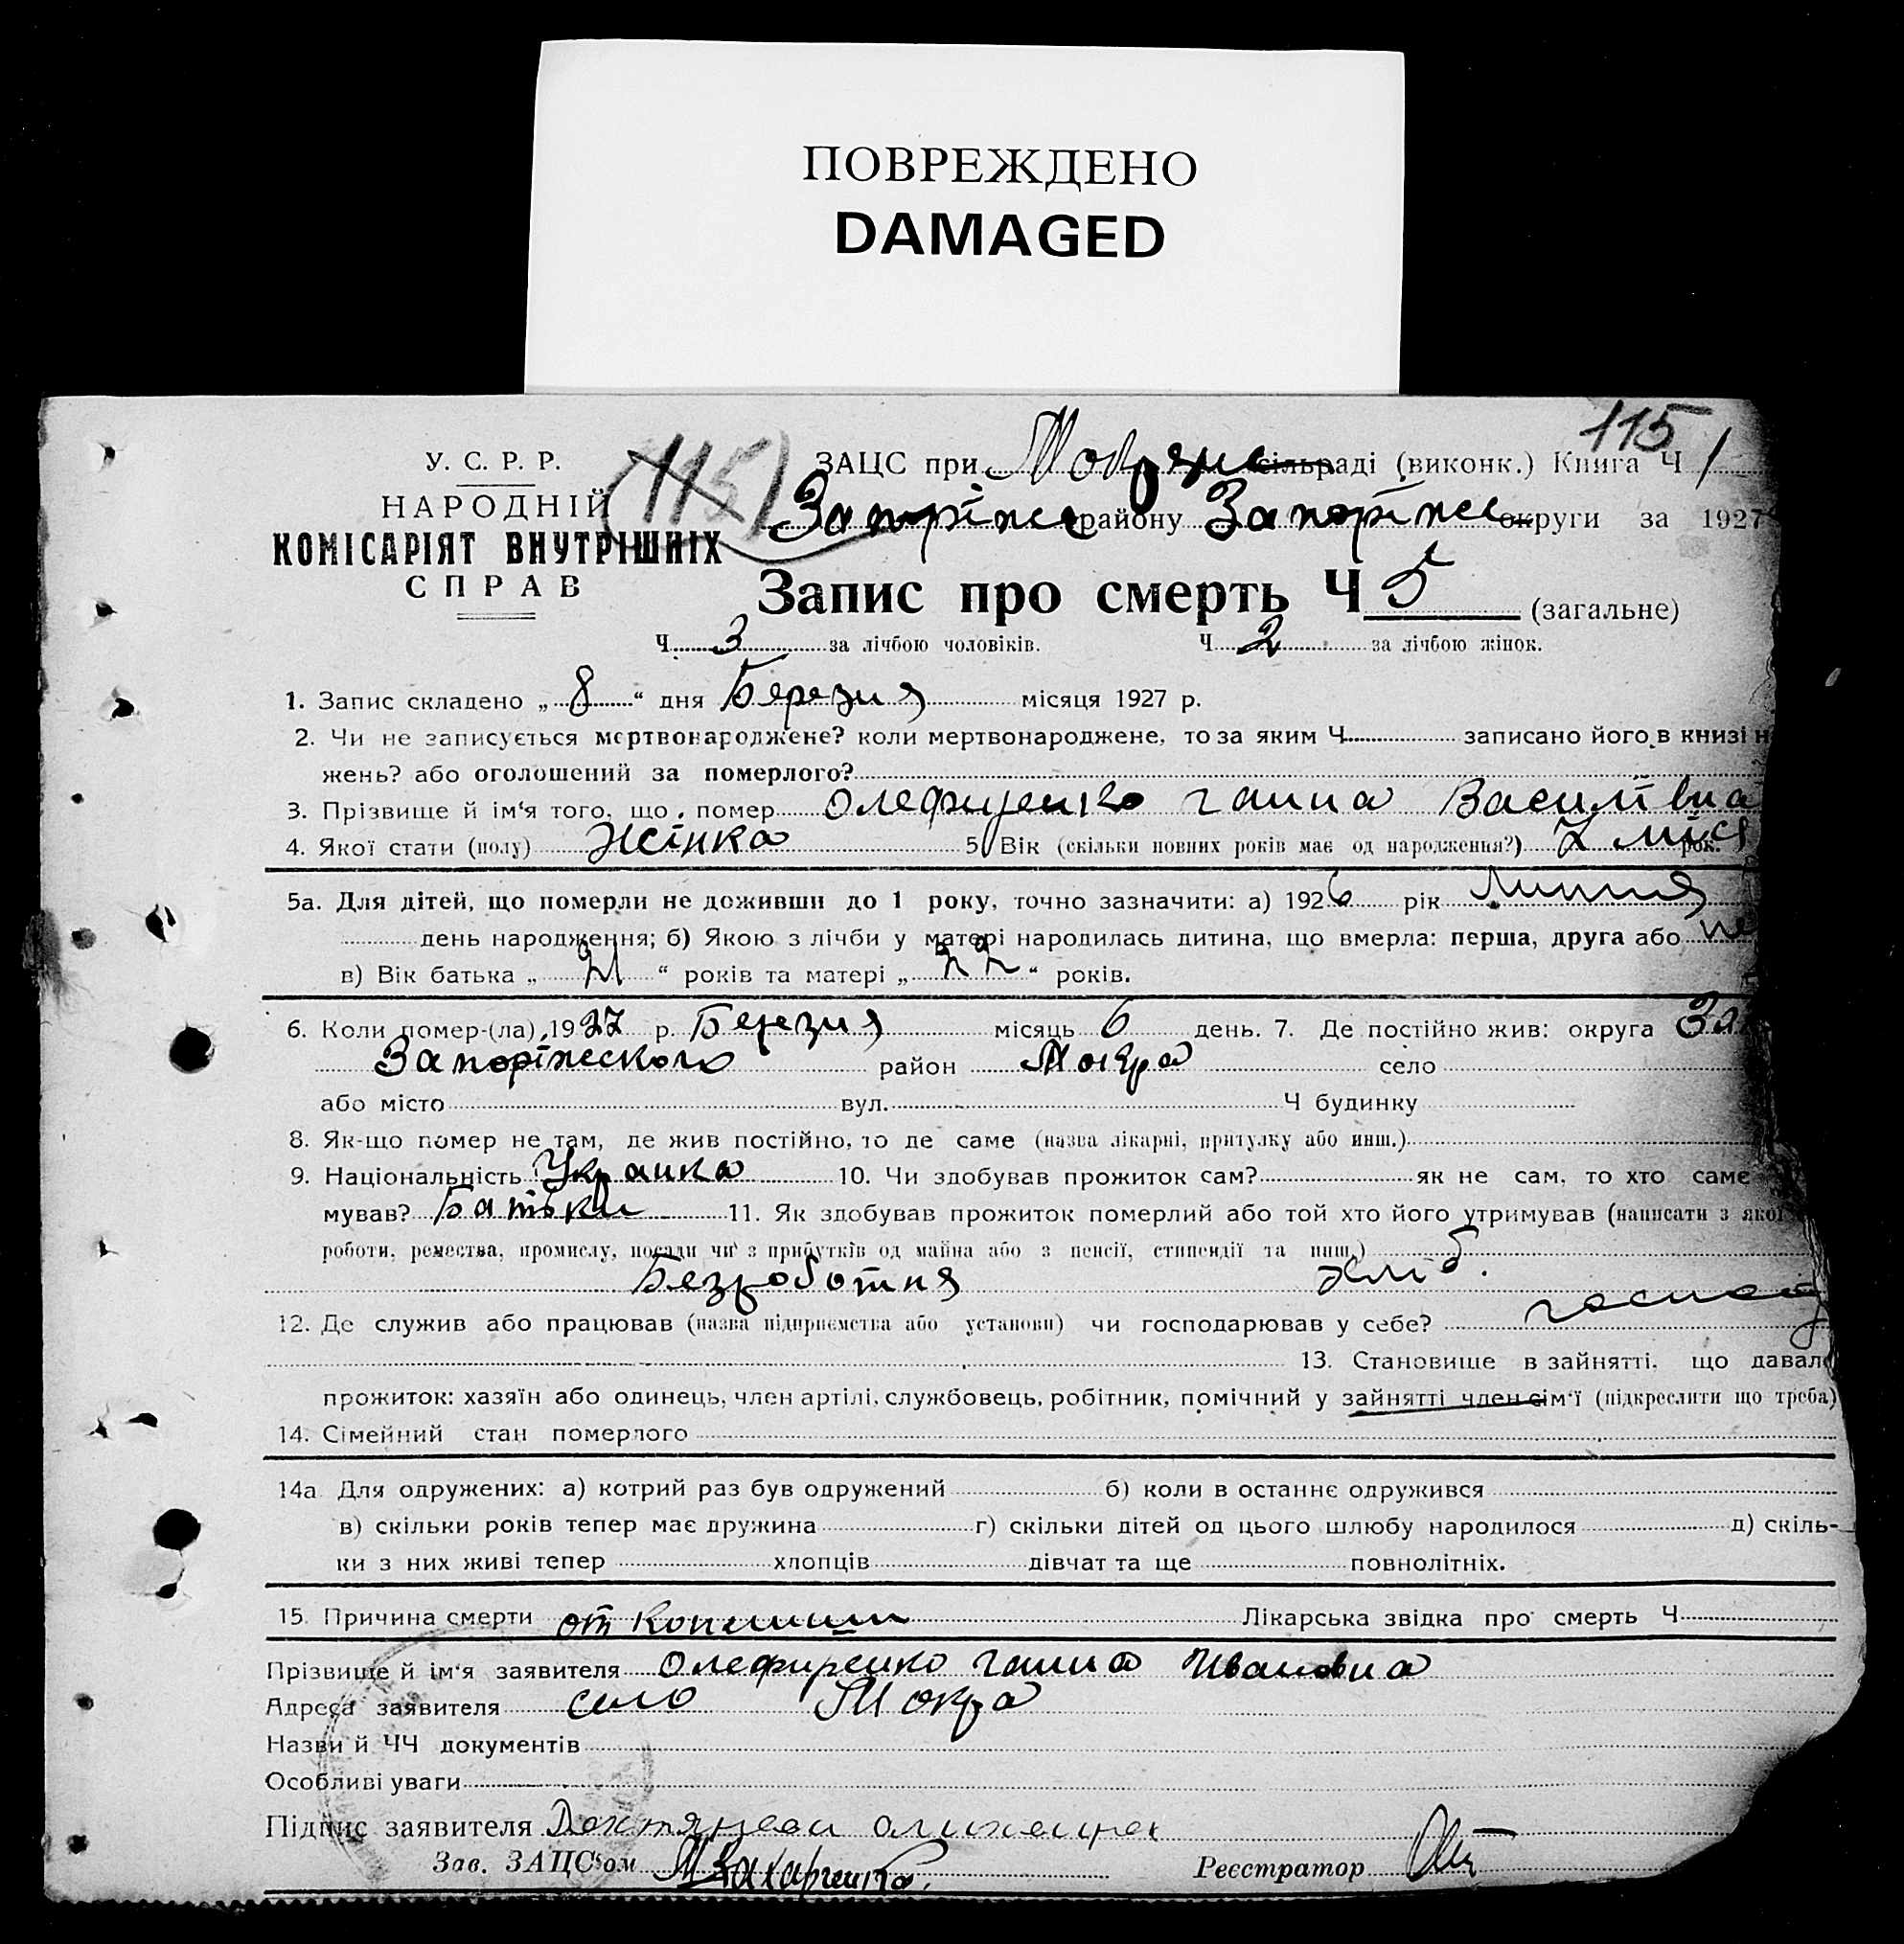 ПОВРЕЖДЕНО
DAMAGED
115
У. С. Р. Р.
НАРОДНІЙ
КОМІСАРІЯТ ВНУТРІШНІХ
СПРАВ
(115)
ЗАЦС при Мокрян сільраді (виконк.) Книга Ч 1
Запоріжс району Запоріжс округи за 1927
Запис про смерть Ч 5 (загальне)
Ч 3 за лічбою чоловіків. Ч 2 за лічбою жінок.
1. Запис складено „ 8 “ дня Березня місяця 1927 р.
2. Чи не записується мертвонароджене? коли мертвонароджене, то за яким Ч записано його в книзі н
жень? або оголошений за померлого?
3. Прізвище й ім'я того, що помер Олефиренко Ганна Василівна
4. Якої стати (полу) Жінка 5. Вік (скільки повних років має од народження?) 7 міся рок.
5а. Для дітей, що померли не доживши до 1 року, точно зазначити: а) 1926 рік Липня
день народження; б) Якою з лічби у матері народилась дитина, що вмерла: перша, друга або пе
в) Вік батька „ 21 “ років та матері „ 22 “ років.
6. Коли помер-(ла) 1927 р. Березня місяць 6 день. 7. Де постійно жив: округа Зап
Запоріжского район Мокра село
або місто вул. Ч будинку
8. Як-що помер не там, де жив постійно, то де саме (назва лікарні, притулку або инш.)
9. Національність Украинка 10. Чи здобував прожиток сам? як не сам, то хто саме
мував? Батьки 11. Як здобував прожиток померлий або той хто його утримував (написати з якої
роботи, ремества, промислу, посади чи з прибутків од майна або з пенсії, стипендії та инш.)
Безроботня хліб.
12. Де служив або працював (назва підприємства або установи) чи господарював у себе? господ
13. Становище в зайнятті, що давало
прожиток: хазяїн або одинець, член артілі, службовець, робітник, помічний у зайнятті член сім'ї (підкреслити що треба)
14. Сімейний стан померлого
14а Для одружених: а) котрий раз був одружений б) коли в останнє одружився
в) скільки років тепер має дружина г) скільки дітей од цього шлюбу народилося д) скіль-
ки з них живі тепер хлопців дівчат та ще повнолітніх.
15. Причина смерти от Лікарська звідка про смерть Ч
Прізвище й ім'я заявителя Олефиренко Ганна Ивановна
Адреса заявителя село Мокра
Назви й ЧЧ документів
Особливі уваги
Підпис заявителя
Зав. ЗАЦС'ом МЗахарченко.
Реєстратор